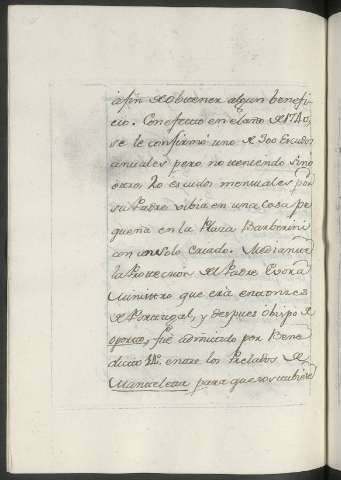 à fin de obtener algun benefi-
cio. Con efecto en el año de 1740,
se le confirmó uno de 300 Escudos
anuales pero no teniendo sino
otros 20 escudos mensuales por
su Padre vibia en una casa pe
queña en la Plaza Barberini
con un solo criado. Mediante
la Proteccion del Padre Evora
Ministro que era entonces
de Portugal, y despues obispo de
oporto, fué admitido por Bene
dicto 14º entre los Prelados de
Manteleta para que sostubiese